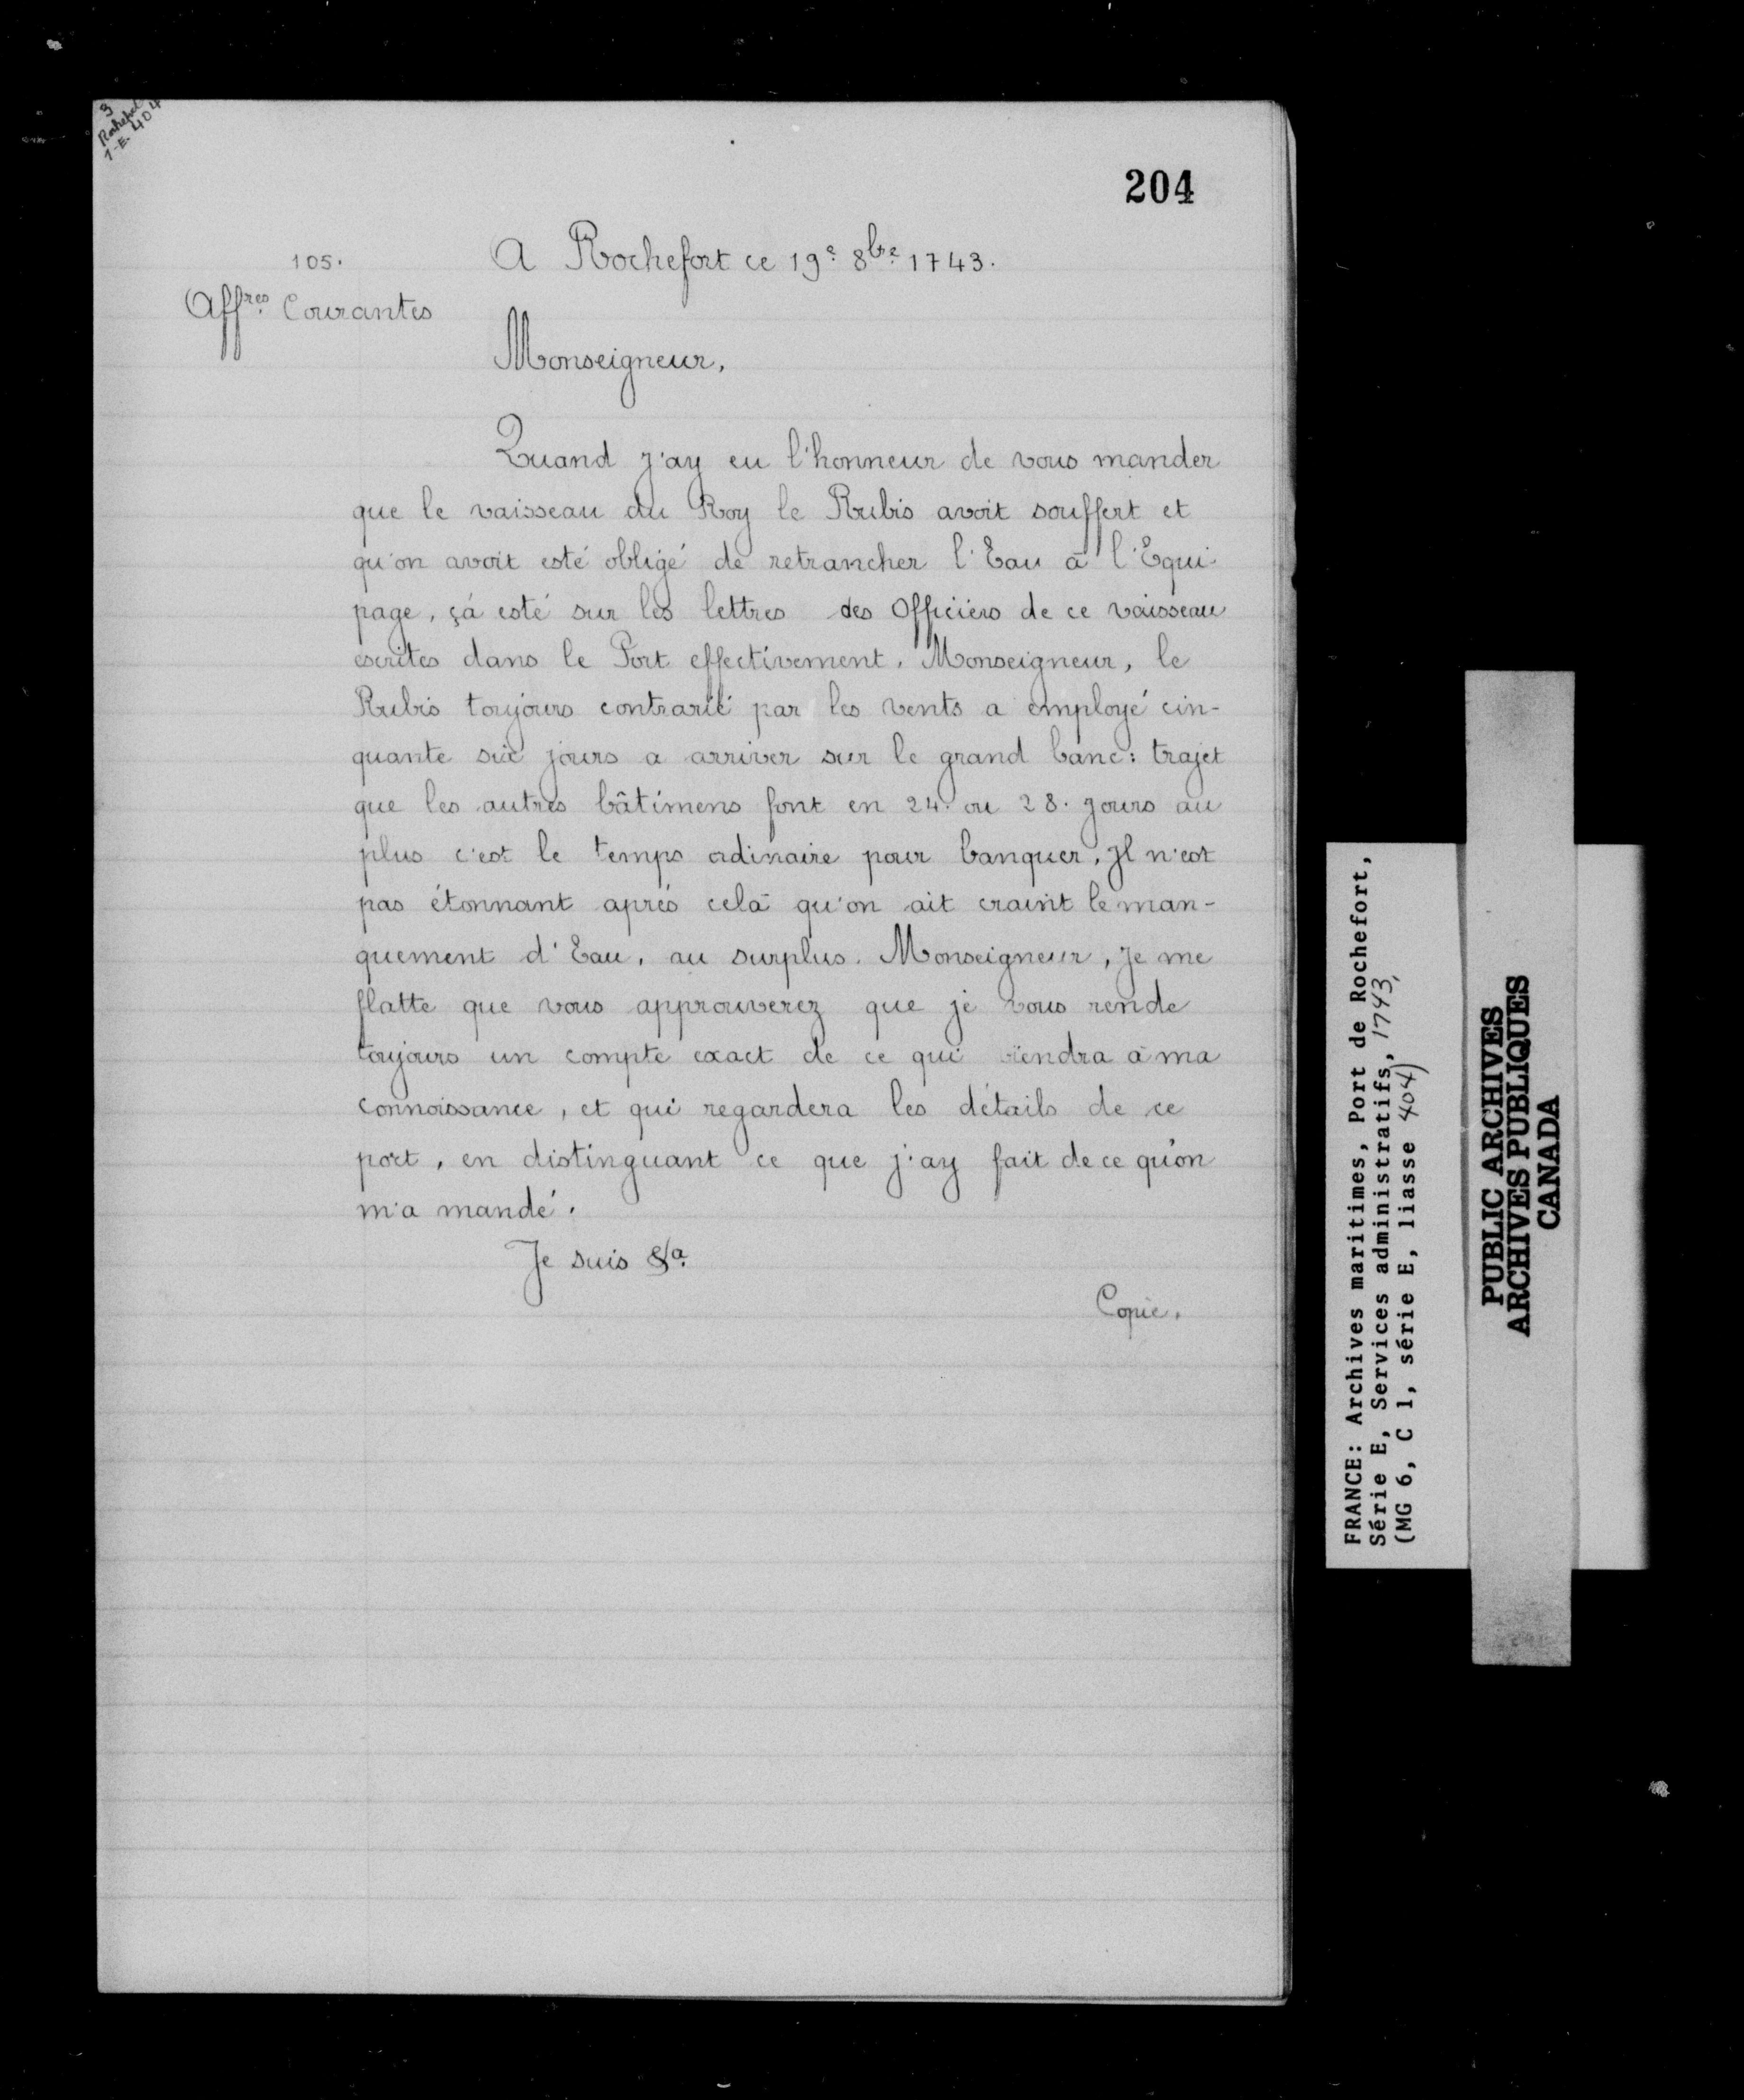 3
Rochefort
1-E. 404
204
105.
A Rochefort ce 19e 8bre 1743.
Affres Courantes
Monseigneur,
Quand j'ay eu l'honneur de vous mander
que le vaisseau du Roy le Rubis avoit souffert et
qu'on avoit esté obligé de retrancher l'Eau à l'Equi-
page, çà esté sur les lettres des Officiers de ce vaisseau
escrites dans le Port effectivement. Monseigneur, le
Rubis toujours contrarié par les vents a employé cin-
quante six jours a arriver sur le grand banc: trajet
que les autres bâtimens font en 24. ou 28. jours au
plus c'est le temps ordinaire pour banquer, Il n'est
pas étonnant aprés celà qu'on ait craint le man-
quement d'Eau, au surplus. Monseigneur, je me
flatte que vous approuverez que je vous rende
toujours un compte exact de ce qui viendra à ma
connoissance, et qui regardera les détails de ce
port, en distinguant ce que j'ay fait de ce qu'on
m'a mandé.
Je suis &a.
Copie.
FRANCE: Archives maritimes, Port de Rochefort,
Série E, Services administratifs, 1743,
(MG 6, C 1, série E, liasse 404)
PUBLIC ARCHIVES
ARCHIVES PUBLIQUES
CANADA